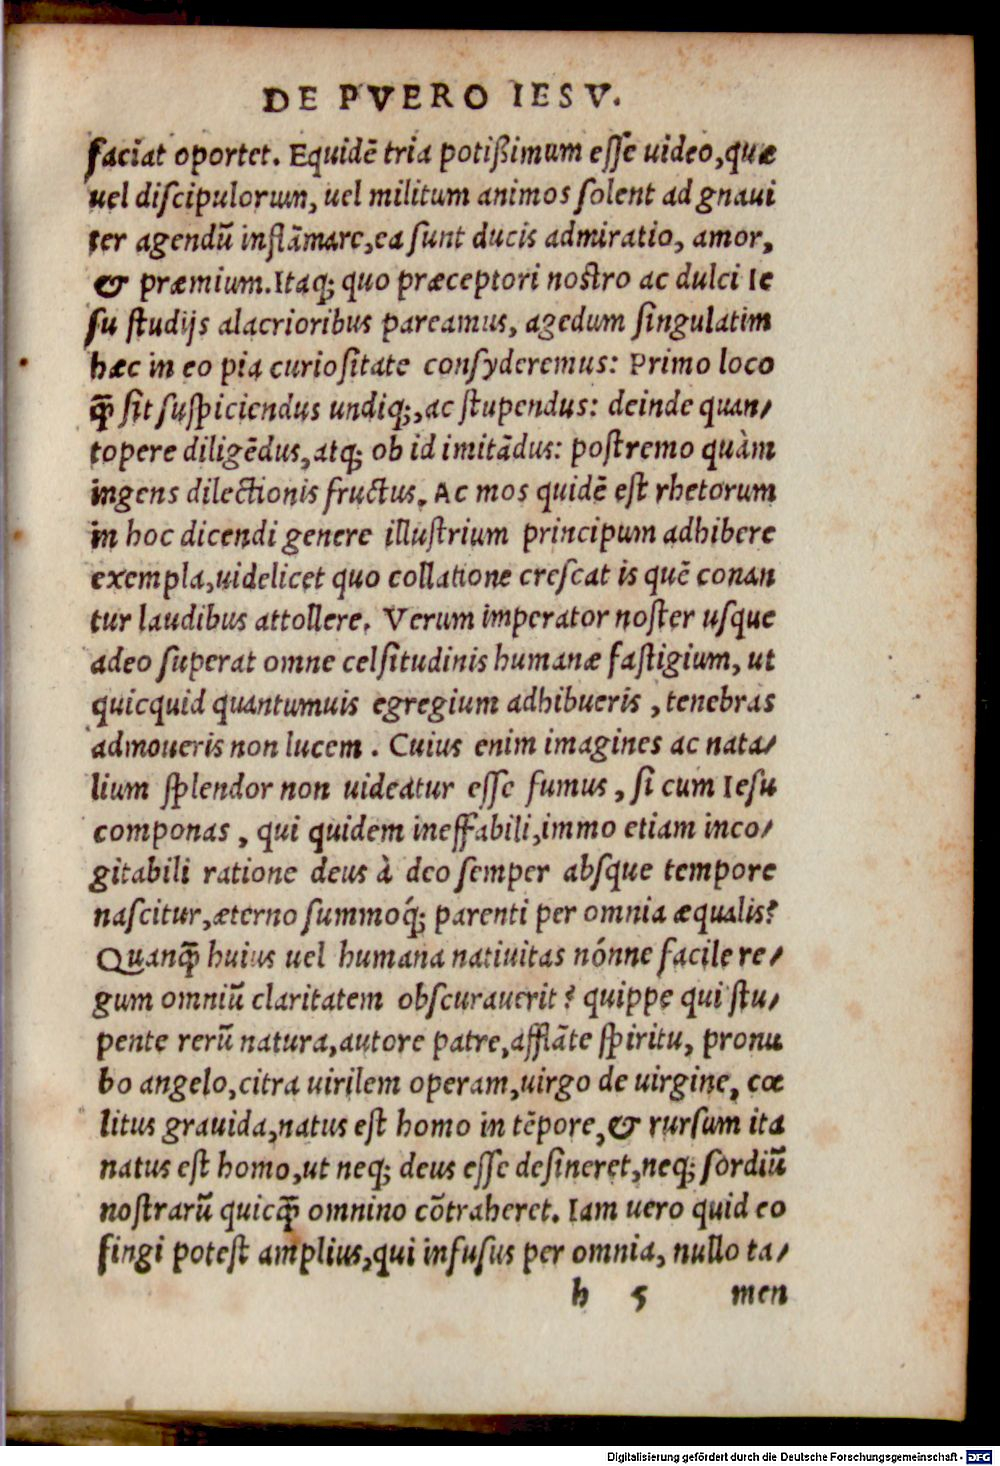 DE PVERO IESV.
faciat oportet. Equidē tria potißimum esse uideo, quæ
uel discipulorum, uel militum animos solent ad gnaui
ter agendū inflāmare, ea sunt ducis admiratio, amor,
& præmium. Itaq; quo præceptori nostro ac dulci Ie
su studijs alacrioribus pareamus, agedum singulatim
hæc in eo pia curiositate consyderemus: Primo loco
q̄ sit suspiciendus undiq;, ac stupendus: deinde quan/
topere diligēdus, atq; ob id imitādus: postremo quàm
ingens dilectionis fructus. Ac mos quidē est rhetorum
in hoc dicendi genere illustrium principum adhibere
exempla, uidelicet quo collatione crescat is quē conan
tur laudibus attollere. Verum imperator noster usque
adeo superat omne celsitudinis humanæ fastigium, ut
quicquid quantumuis egregium adhibueris, tenebras
admoueris non lucem. Cuius enim imagines ac nata/
lium splendor non uideatur esse fumus, si cum Iesu
componas, qui quidem ineffabili, immo etiam inco/
gitabili ratione deus à deo semper absque tempore
nascitur, æterno summoq́; parenti per omnia æqualis?
Quanq̄ huius uel humana natiuitas nónne facile re/
gum omniū claritatem obscurauerit? quippe qui stu/
pente rerū natura, autore patre, afflāte spiritu, pronu
bo angelo, citra uirilem operam, uirgo de uirgine, cœ
litus grauida, natus est homo in tēpore, & rursum ita
natus est homo, ut neq; deus esse desineret, neq; sordiū
nostrarū quicq̄ omnino cōtraheret. Iam uero quid eo
fingi potest amplius, qui infusus per omnia, nullo ta/
h 5 men
Digitalisierung gefördert durch die Deutsche Forschungsgemeinschaft - DFG